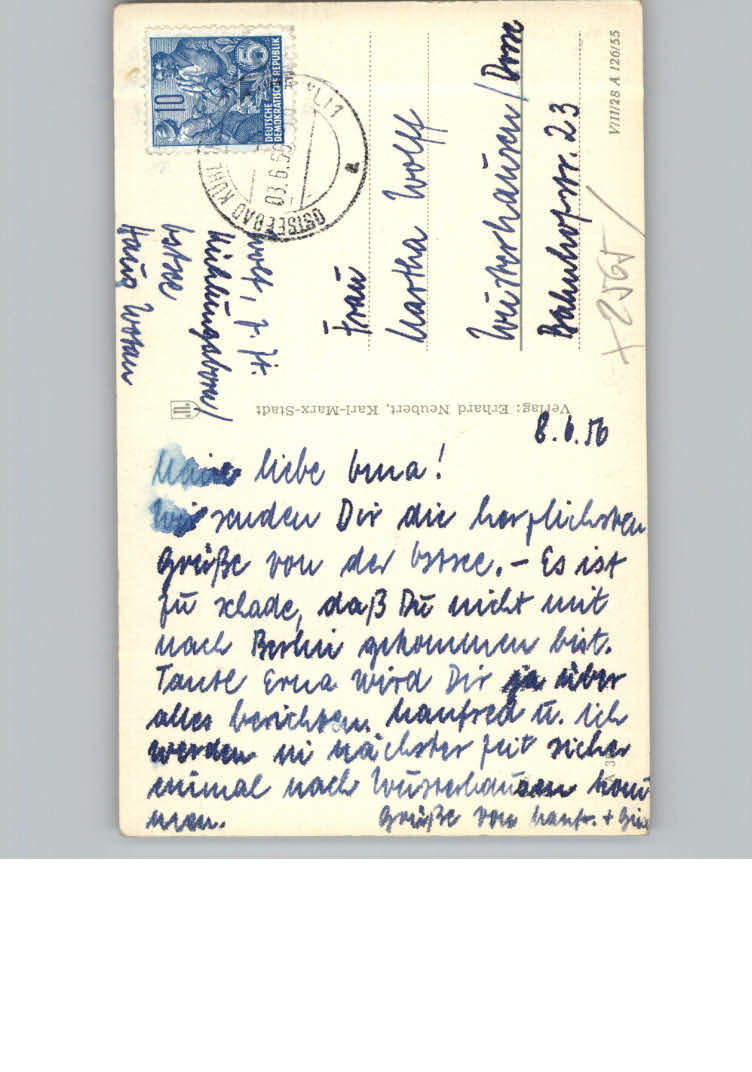 10
5
DEUTSCHE
DEMOKRATISCHE REPUBLIK
OSTSEEBAD KÜHL
03.6.56
a
VIII/28 A 126/55
Wolf, z. Zt.
Kühlungsborn/
Ostsee
Haus
Frau
Martha Wolff
Wusterhausen/Dosse
Bahnhofstr. 23
+2565/
Verlag: Erhard Neubert, Karl-Marx-Stadt
8.6.56
Meine liebe Oma!
Wir senden Dir die herzlichsten
Grüße von der Ostsee. – Es ist
zu schade, daß Du nicht mit
nach Berlin gekommen bist.
Tante Erna wird Dir ja über
alles berichten. Manfred u. ich
werden in nächster Zeit sicher
einmal nach Wusterhausen kom
men. Grüße von Manfr. +